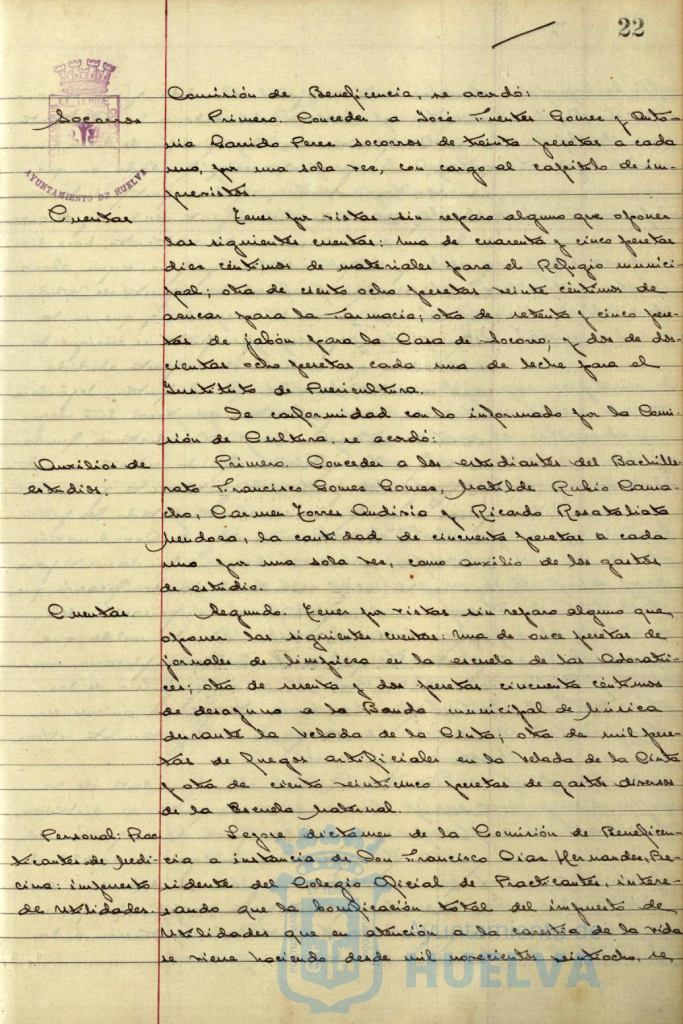 22
Comisión de Beneficencia, se acordó:
Socorros
Primero. Conceder a José Fuentes Gomez y Anto-
nia Garrido Perez socorros de treinta pesetas a cada
uno, por una sola vez, con cargo al capitulo de im-
previstos.
AYUNTAMIENTO DE HUELVA
Cuentas
Tener por vistas sin reparo alguno que oponer
las siguientes cuentas: Una de cuarenta y cinco pesetas
diez céntimos de materiales para el Refugio munici-
pal; otra de ciento ocho pesetas veinte céntimos de
azucar para la Farmacia; otra de setenta y cinco pese-
tas de jabón para la Casa de Socorro; y dos de dos-
cientas ocho pesetas cada una de leche para el
Instituto de Puericultura.
De conformidad con lo informado por la Comi-
sión de Cultura, se acordó:
Auxilios de
estudios.
Primero. Conceder a los estudiantes del Bachille-
rato Francisco Gomez Gomez, Matilde Rubio Cama-
cho, Carmen Torres Andivia y Ricardo
Mendoza, la cantidad de cincuenta pesetas a cada
uno por una sola vez, como auxilio de los gastos
de estudio.
Cuentas.
Segundo. Tener por vistas sin reparo alguno que
oponer las siguientes cuentas: Una de once pesetas de
jornales de limpieza en la escuela de las Adoratri-
ces; otra de sesenta y dos pesetas cincuenta céntimos
de desayuno a la Banda municipal de Música
durante la Velada de la Cinta; otra de mil pese-
tas de fuegos artificiales en la Velada de la Cinta
y otra de ciento veinticinco pesetas de gastos diversos
de la Escuela Maternal.
Personal: Prac
ticantes de Medi-
cina: impuesto
de Utilidades.
Leyose dictamen de la Comisión de Beneficen-
cia a instancia de Don Francisco Diaz Hernandez, Pre-
sidente del Colegio Oficial de Practicantes, intere-
sando que la bonificación total del impuesto de
Utilidades que en atención a la carestia de la vida
se viene haciendo desde mil novecientos veintiocho, se
HUELVA